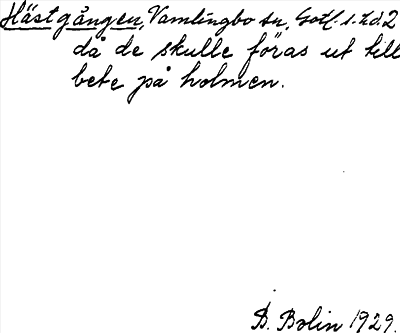 Hästgången, Vamlingbo sn, Gotl. s. 2 d. 2
då de skulle föras ut till
bete på holmen.
D. Bolin 1929.